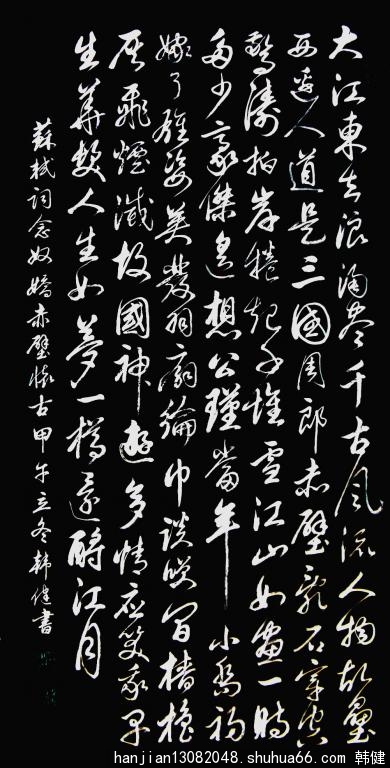 大江東去浪淘尽千古风流人物故壘
西邊人道是三国周郎赤壁亂石穿空
驚濤拍岸捲起千堆雪江山如畫一時
多少豪傑遙想公瑾當年小喬初
嫁了雄姿英發羽扇綸巾談笑間檣櫓
灰飛煙滅故國神遊多情应笑我早
生華髮人生如夢一樽還酹江月
蘇軾詞念奴嬌赤壁懷古甲午立冬韩健書
hanjian13082048.shuhua66.com 韩健